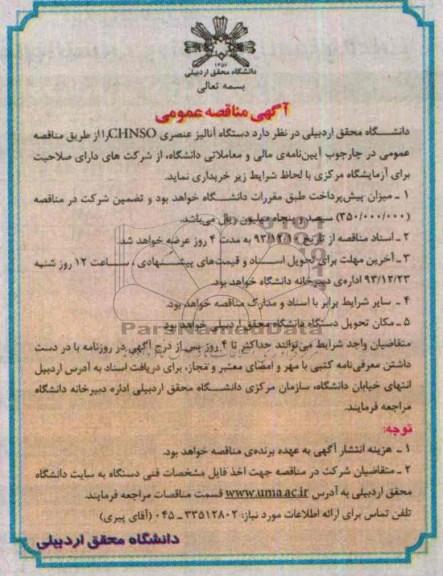 ۱۳۵۷
دانشگاه محقق اردبیلی
بسمه تعالی
آگهی مناقصه عمومی
دانشگاه محقق اردبیلی در نظر دارد دستگاه آنالیز عنصری CHNSO را از طریق مناقصه
عمومی در چارچوب آیین‌نامه‌ی مالی و معاملاتی دانشگاه، از شرکت های دارای صلاحیت
برای آزمایشگاه مرکزی با لحاظ شرایط زیر خریداری نماید.
۱ ـ میزان پیش‌پرداخت طبق مقررات دانشگاه خواهد بود و تضمین شرکت در مناقصه
(۳۵۰/۰۰۰/۰۰۰) سیصد و پنجاه میلیون ریال می‌باشد.
۲ ـ اسناد مناقصه از تاریخ به مدت ۴ روز عرضه خواهد شد.
۳ ـ آخرین مهلت برای تحویل اسناد و قیمت‌های پیشنهادی ، ساعت ۱۲ روز شنبه
۹۳/۱۲/۲۳ اداره‌ی دبیرخانه دانشگاه خواهد بود.
۴ ـ سایر شرایط برابر با اسناد و مدارک مناقصه خواهد بود.
۵ ـ مکان تحویل دستگاه دانشگاه محقق اردبیلی خواهد بود.
متقاضیان واجد شرایط می‌توانند حداکثر تا ۴ روز پس از درج آگهی در روزنامه با در دست
داشتن معرفی‌نامه کتبی با مهر و امضای معتبر و مجاز، برای دریافت اسناد به آدرس اردبیل
انتهای خیابان دانشگاه، سازمان مرکزی دانشگاه محقق اردبیلی اداره دبیرخانه دانشگاه
مراجعه فرمایند.
توجه:
۱ ـ هزینه انتشار آگهی به عهده برنده‌ی مناقصه خواهد بود.
۲ ـ متقاضیان شرکت در مناقصه جهت اخذ فایل مشخصات فنی دستگاه به سایت دانشگاه
محقق اردبیلی به آدرس www.uma.ac.ir قسمت مناقصات مراجعه فرمایند.
تلفن تماس برای ارائه اطلاعات مورد نیاز: ۳۳۵۱۲۸۰۲ ـ ۰۴۵ (آقای پیری)
دانشگاه محقق اردبیلی